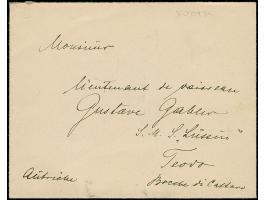 Monsieur
lieutenant de vaisseau
Gustave Gabler
S. M. S. „Lussin"
Teodo
Autriche
Bocche di Cattaro